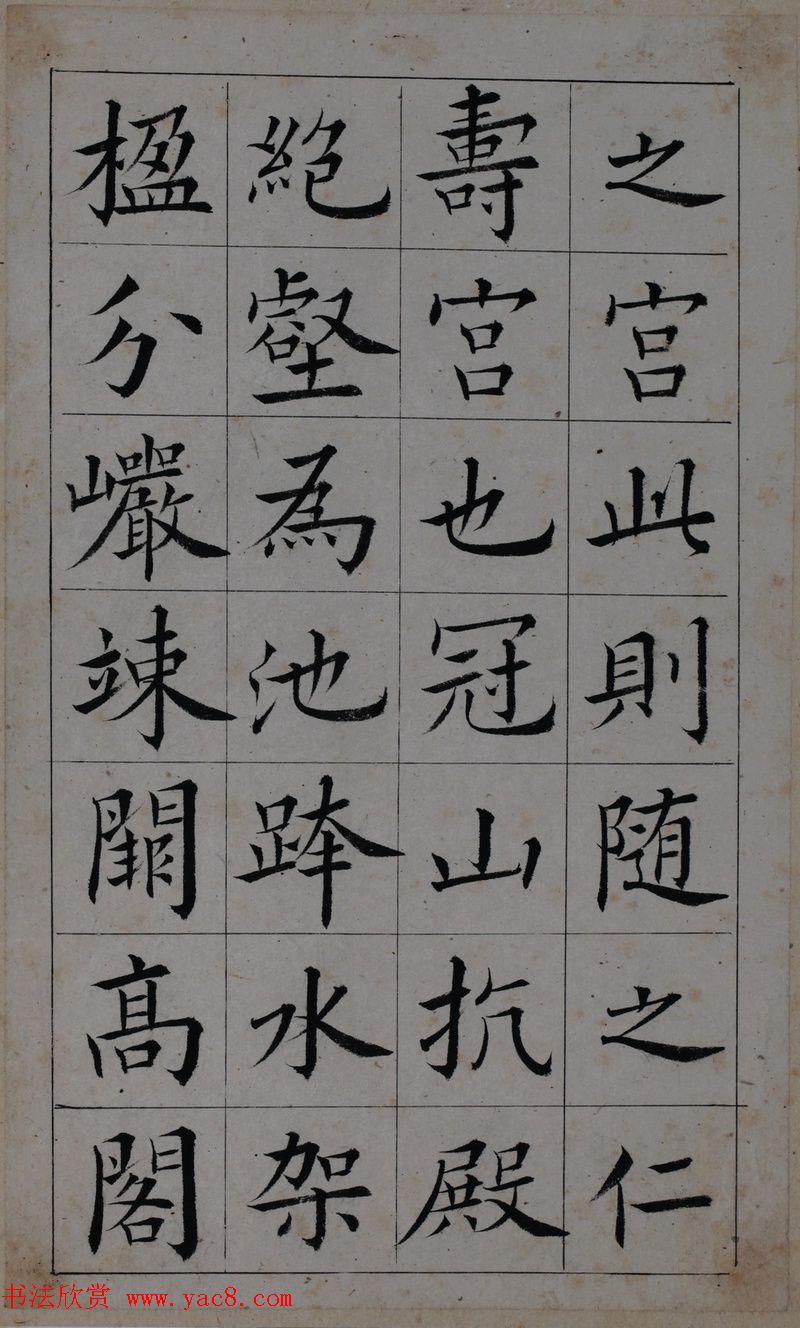 之宮此則随之仁
壽宮也冠山抗殿
絶壑為池跨水架
楹分巖竦闕高閣
书法欣赏 www.yac8.com